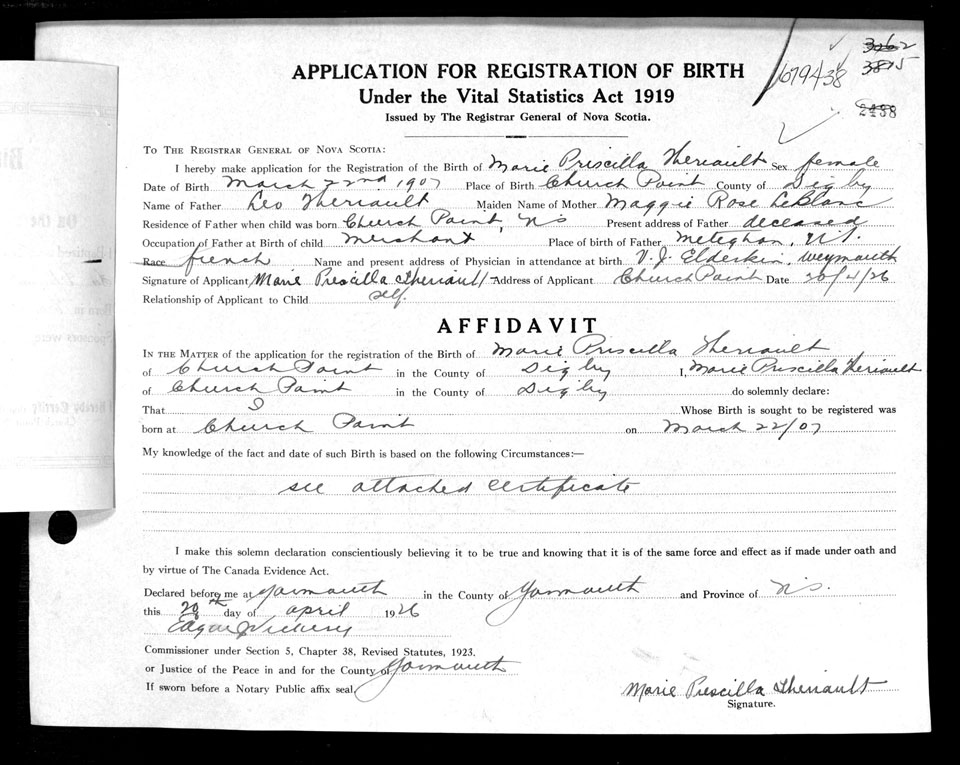 3262
3815
1679438
2438
APPLICATION FOR REGISTRATION OF BIRTH
Under the Vital Statistics Act 1919
Issued by The Registrar General of Nova Scotia.
TO THE REGISTRAR GENERAL OF NOVA SCOTIA:
I hereby make application for the Registration of the Birth of Marie Priscilla Theriault Sex female
Date of Birth March 22nd 1907 Place of Birth Church Point County of Digby
Name of Father Leo Theriault Maiden Name of Mother Maggie Rose LeBlanc
Residence of Father when child was born Church Point, NS Present address of Father deceased
Occupation of Father at Birth of child merchant Place of birth of Father Meteghan, NS.
Race french Name and present address of Physician in attendance at birth V. J. Elderkin, Weymouth
Signature of Applicant Marie Prescilla Theriault Address of Applicant Church Point Date 20/4/26
Relationship of Applicant to Child self.
AFFIDAVIT
IN THE MATTER of the application for the registration of the Birth of Marie Priscilla Theriault
of Church Point in the County of Digby I, Marie Priscilla Theriault
of Church Point in the County of Digby do solemnly declare:
That I Whose Birth is sought to be registered was
born at Church Point on March 22/07
My knowledge of the fact and date of such Birth is based on the following Circumstances:—
see attached certificate
I make this solemn declaration conscientiously believing it to be true and knowing that it is of the same force and effect as if made under oath and
by virtue of The Canada Evidence Act.
Declared before me at Yarmouth in the County of Yarmouth and Province of N.S.
this 20th day of april 1926
Edgar
Commissioner under Section 5, Chapter 38, Revised Statutes, 1923.
or Justice of the Peace in and for the County of Yarmouth
If sworn before a Notary Public affix seal.
Marie Prescilla Theriault
Signature.